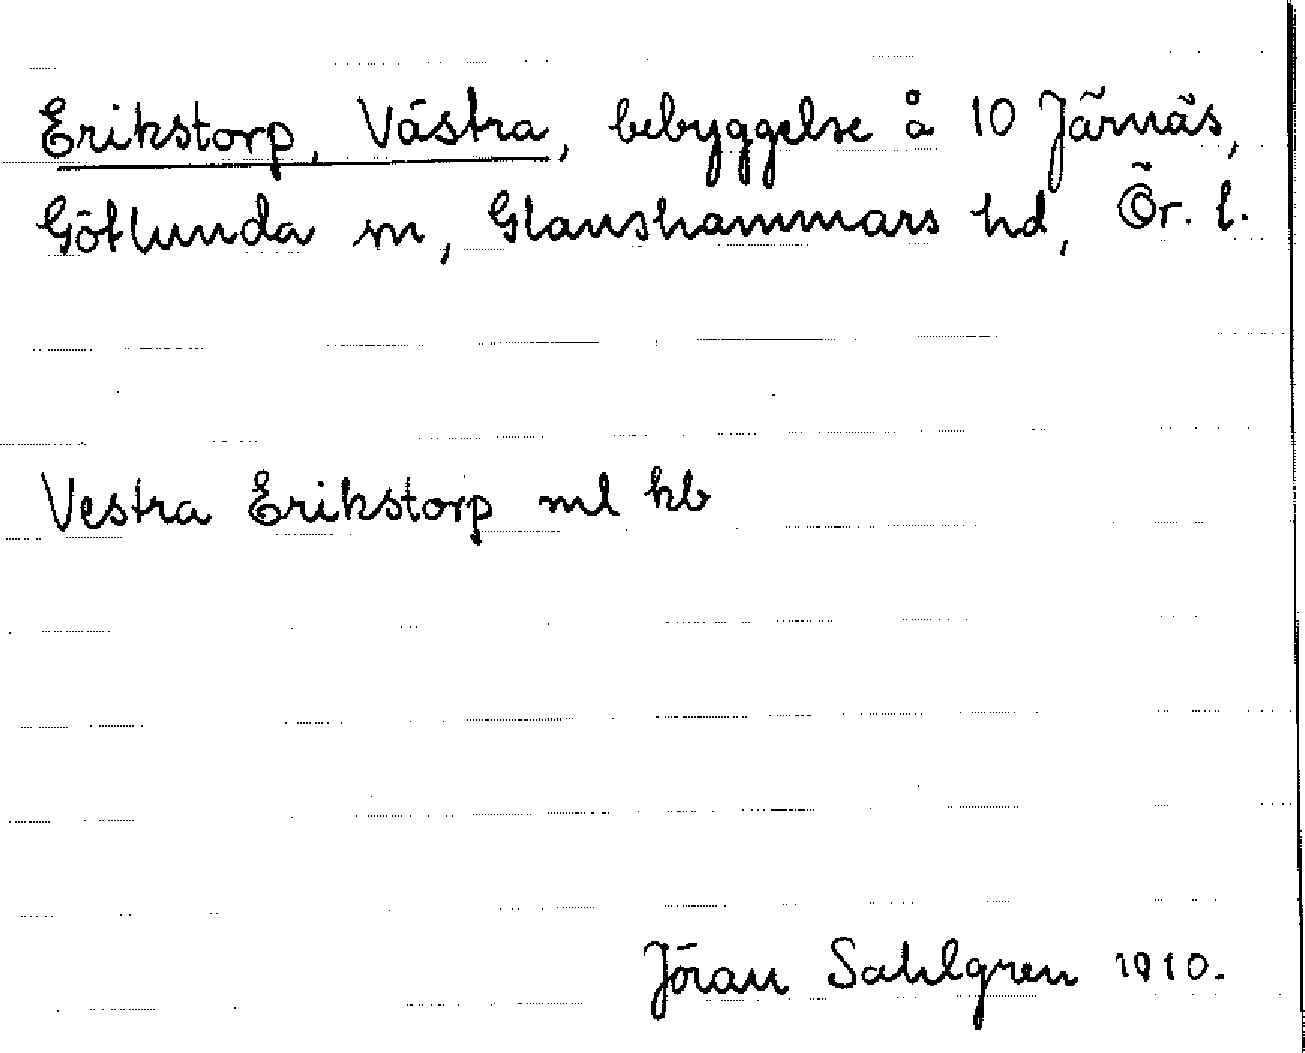 Erikstorp, Västra, bebyggelse å 10 Järnäs,
Götlunda sn, Glanshammars hd, Ör. l.
Vestra Erikstorp ml kb
Jöran Sahlgren 1910.